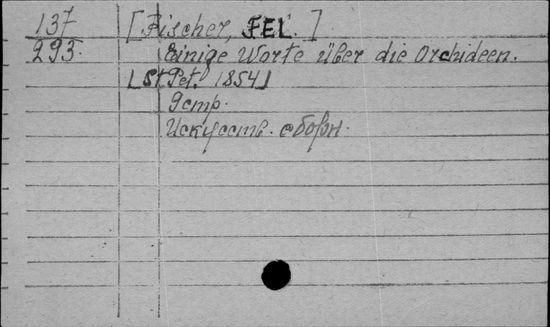 137 [Fischer, FEL. ]
293. Einige Worte über die Orchideen.
[St Pet. 1854]
9 стр.
Искусств. сборн.